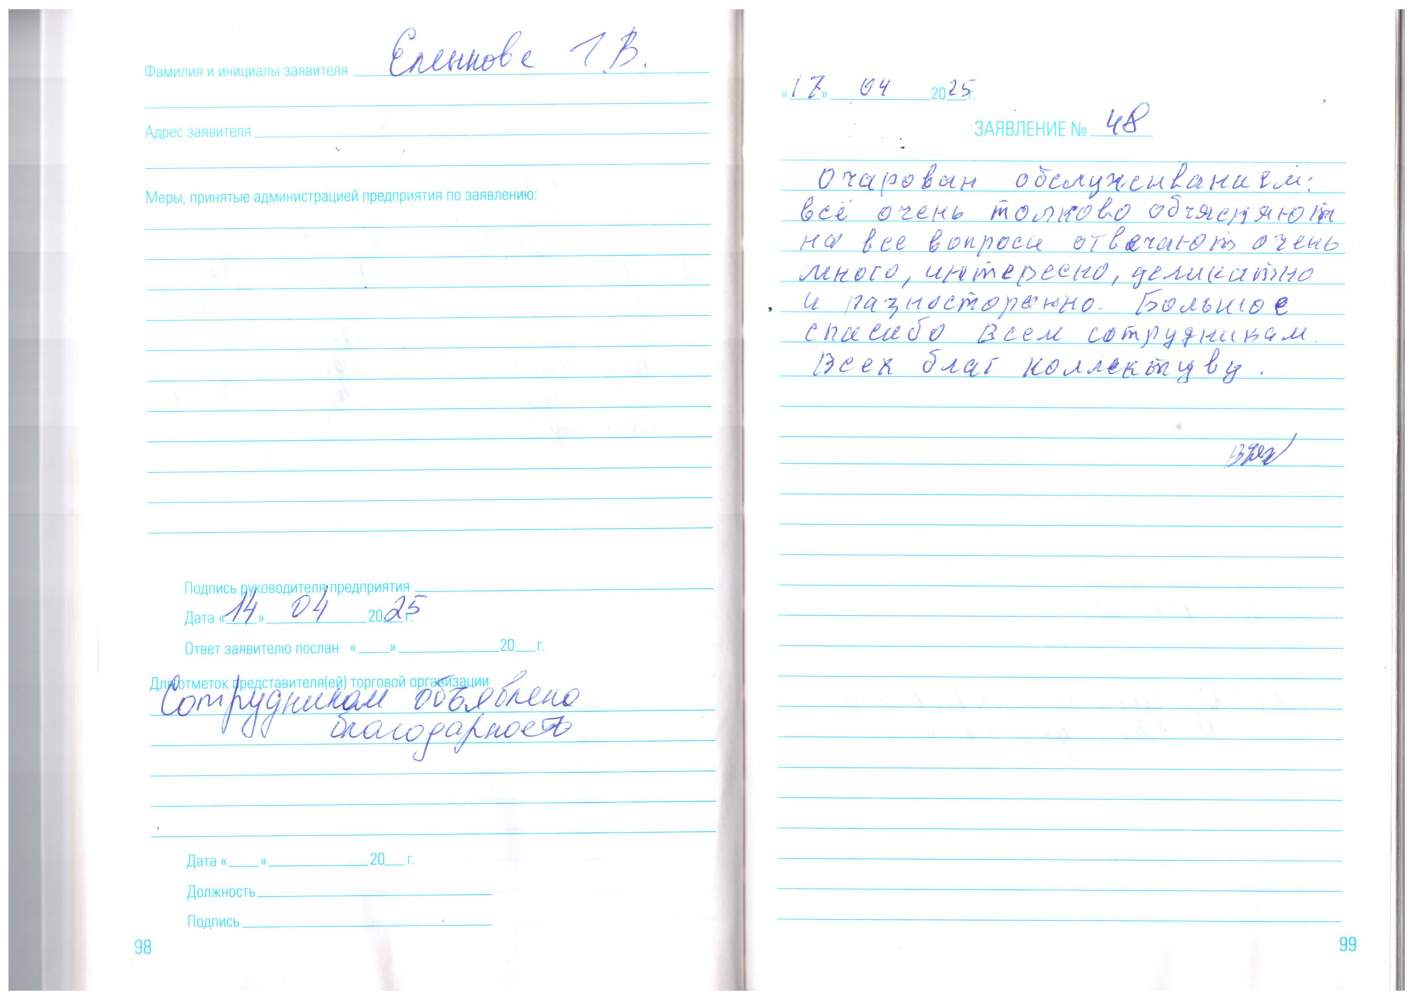 Фамилия и инициалы заявителя Еленкова Г.В.
Адрес заявителя
Меры, принятые администрацией предприятия по заявлению:
Подпись руководителя предприятия
Дата «14» 04 2025 г.
Ответ заявителю послан «___» ___ 20__ г.
Для отметок представителя(ей) торговой организации
Сотрудникам объявлена
благодарность
Дата «___» ___ 20__ г.
Должность
Подпись
98
«17» 04 2025 г.
ЗАЯВЛЕНИЕ № 48
Очарован обслуживанием:
всё очень толково объясняют
на все вопросы отвечают очень
много, интересно, деликатно
и разносторонно. Большое
спасибо всем сотрудникам.
Всех благ коллективу.
99